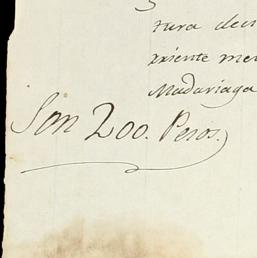 tura decl
rriente me
Madariaga
Son 200. Pesos.